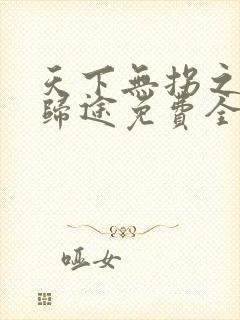 天下無拐之
歸途免費全
哑女